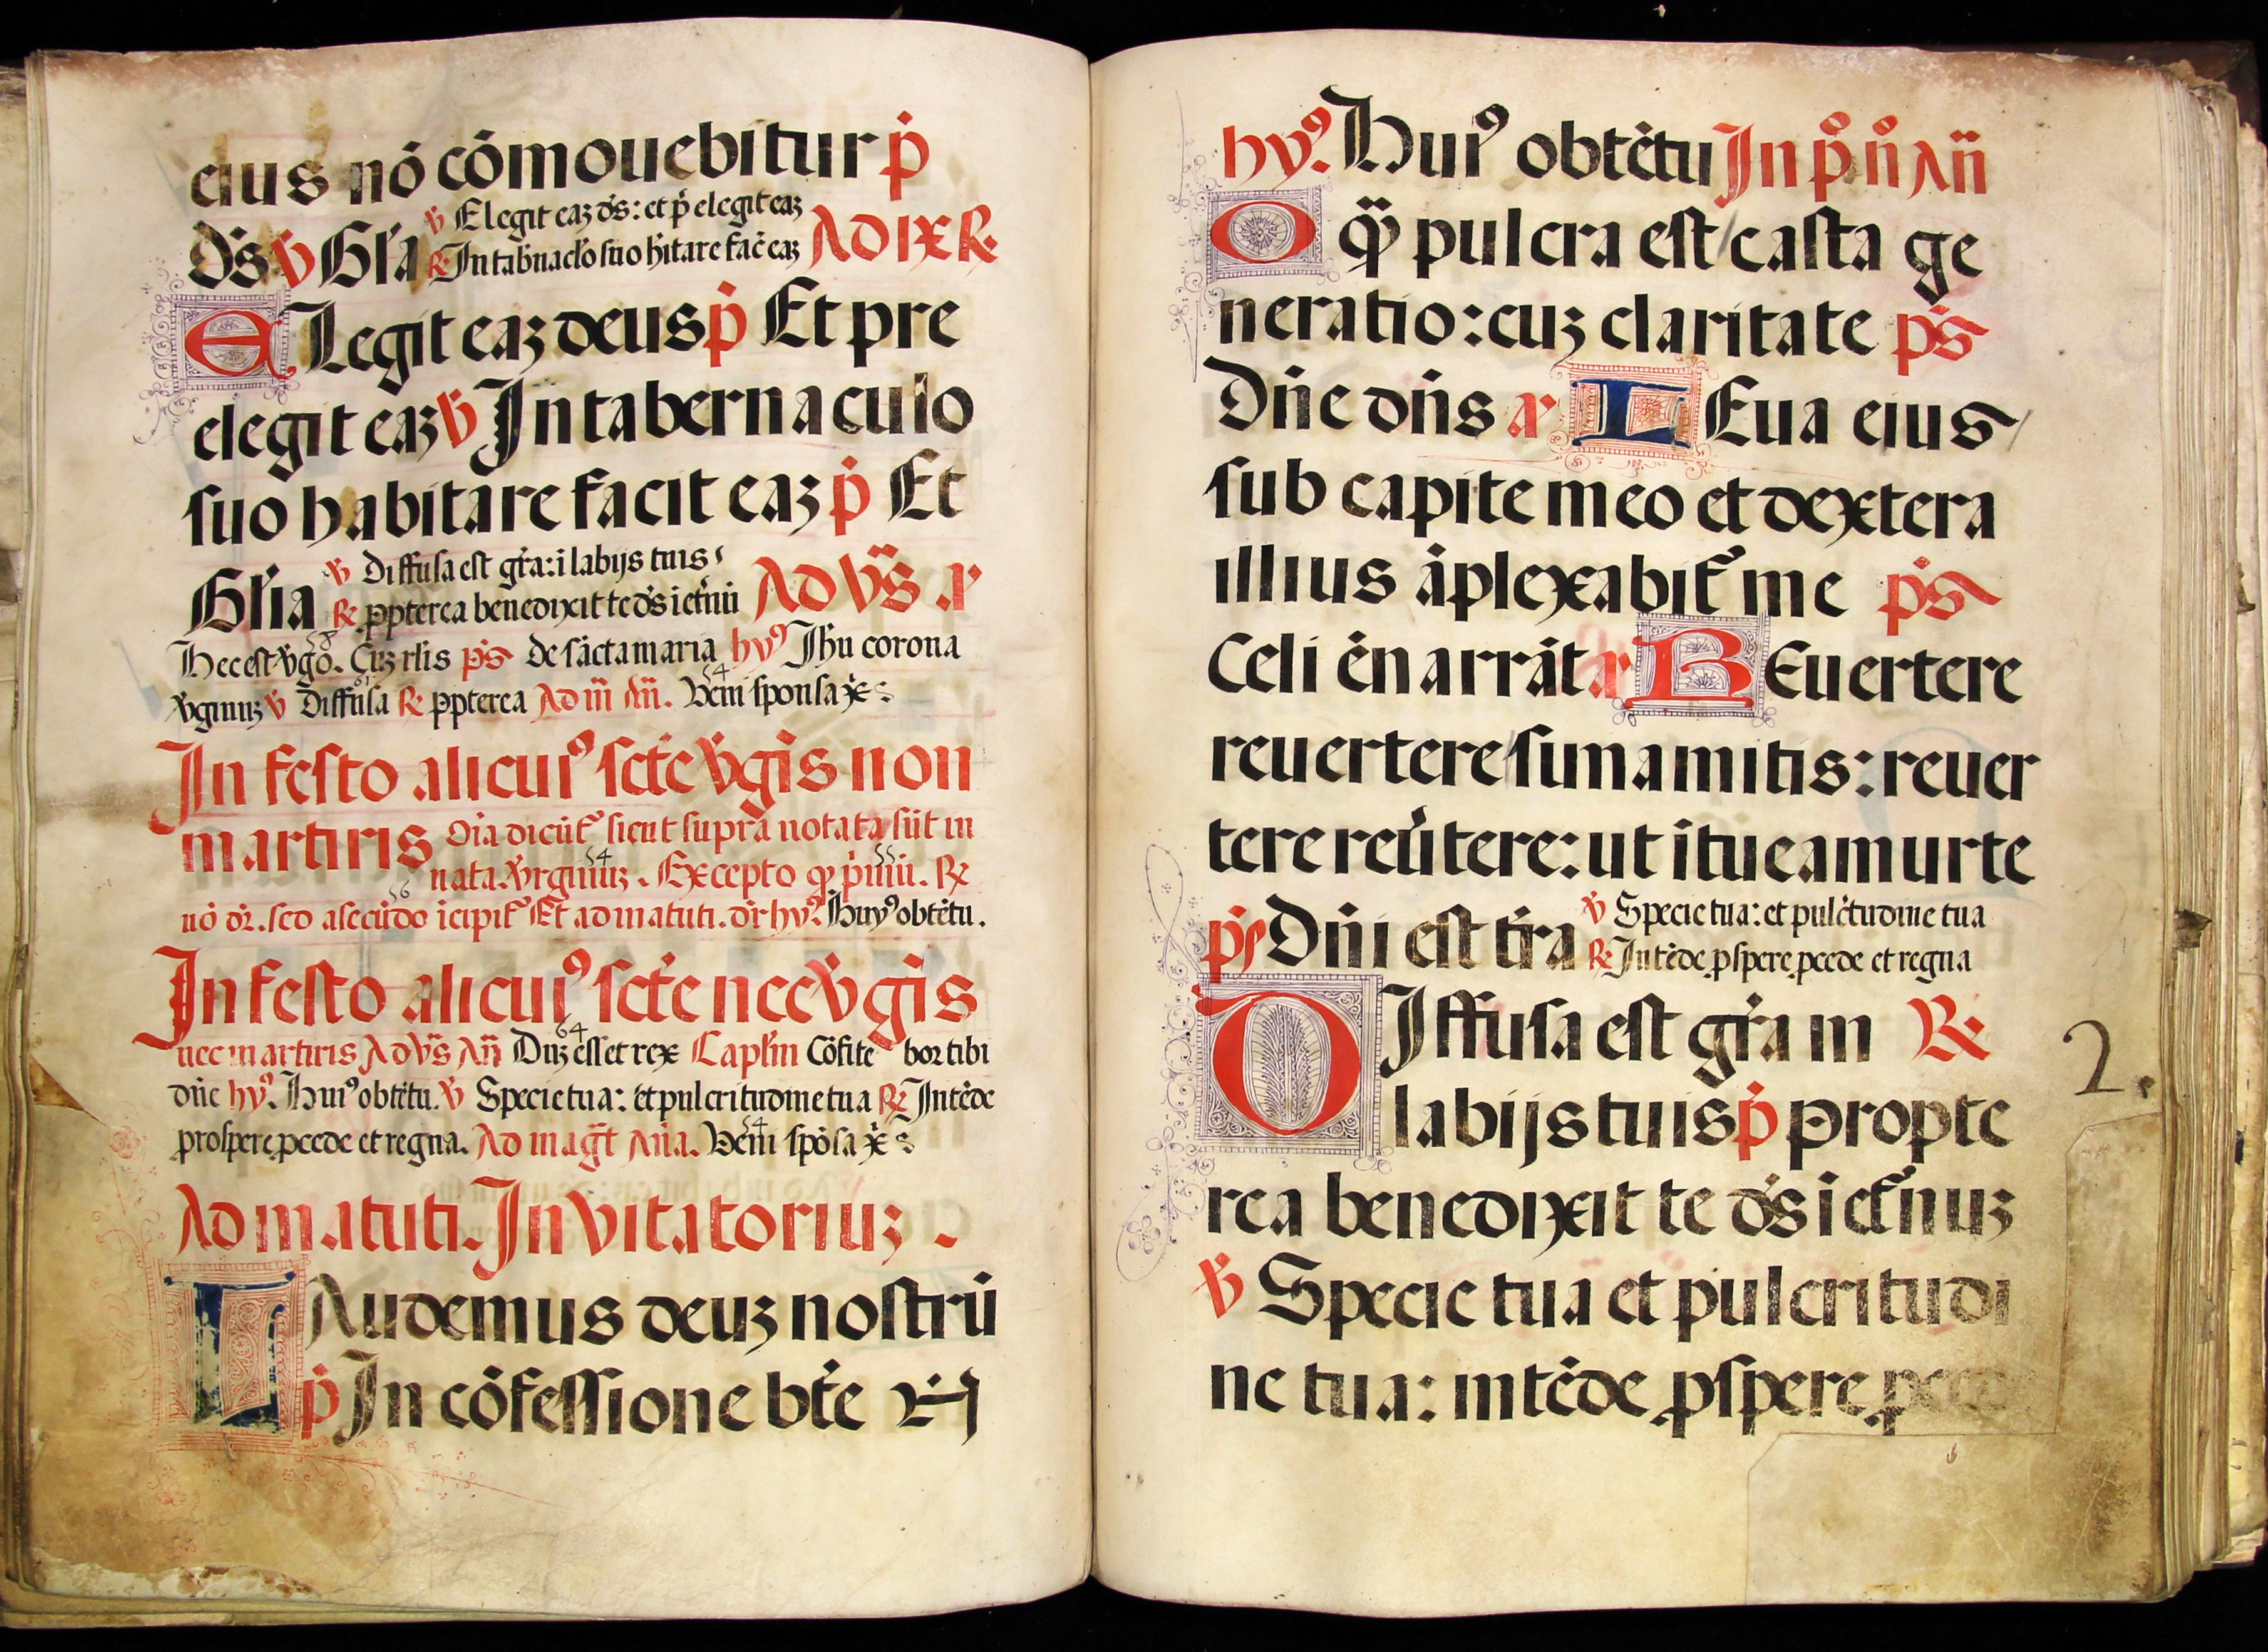 eius nō cōmouebitur p̄
ds̄ ℣ Gl'ia ℣ Elegit eaʒ ds̄: et p̄elegit eaʒ
℟ In tab'naclo suo h'itare fac̄ eaʒ AD IX ℟
ELegit eaʒ deus p̄ Et pre
elegit eaʒ ℣ In tabernaculo
suo habitare facit eaʒ p̄ Et
Gl'ia ℣ Diffusa est gr̄a: ī labijs tuis
℟ ꝓpterea benedixit te ds̄ ī et'nū AD Vs̄ ar
58
Hec est v'go. Cuʒ rl'is ps̄ de sācta maria hyꝰ Ihu corona
v'ginuʒ ℣ Diffusa ℟ ꝓpterea Ad m̄ An̄. Veni sponsa x̄
54
In festo alicuiꝰ scte v'gīs non
martiris Oīa dicūt' sicut supra notata sūt in
nata. v'rginuʒ. Excepto qꝫ p'mū. ℟
54 55
56
nō dr̄. sed a secūdo īcipit' Et ad matuti. dr̄ hyꝰ. Huiꝰ obtētu.
In festo alicuiꝰ scte nec v'gīs
nec martiris AD Vs̄ An̄ Duʒ esset rex Capl'm Cōfitebor tibi
64
dn̄e hyꝰ. Huiꝰ obtētu. ℣ Specie tua: et pulcritudine tua ℟ Intēde
prospere ꝓcede et regna. Ad maḡt An̄a. Veni spōsa x̄
54
Ad matuti. Invitatoriuʒ.
LAudemus deuʒ nostrū
p̄ In cōfessione bt̄e
hyꝰ. Huiꝰ obtētu In p̊ n̊ An̄
O qꝫ pulcra est / casta ge
neratio: cuʒ claritate ps̄
Dn̄e dn̄s ar LEua eius /
sub capite meo et dextera
illius āplexabit' me ps̄
Celi ēnarrāt ar REuertere
reuertere / sunamitis: reuer
tere reu'tere: ut ītueamur te
ps̄ Dn̄i est t'ra ℣ Specie tua: et pulc'tudine tua
℟ Intēde ꝓspere ꝓcede et regna
DIffusa est gr̄a in ℟
2.
labijs tuis p̄ propte
rea benedixit te ds̄ ī et'nuʒ
℣ Specie tua et pulcritudi
ne tua: intēde ꝓspere